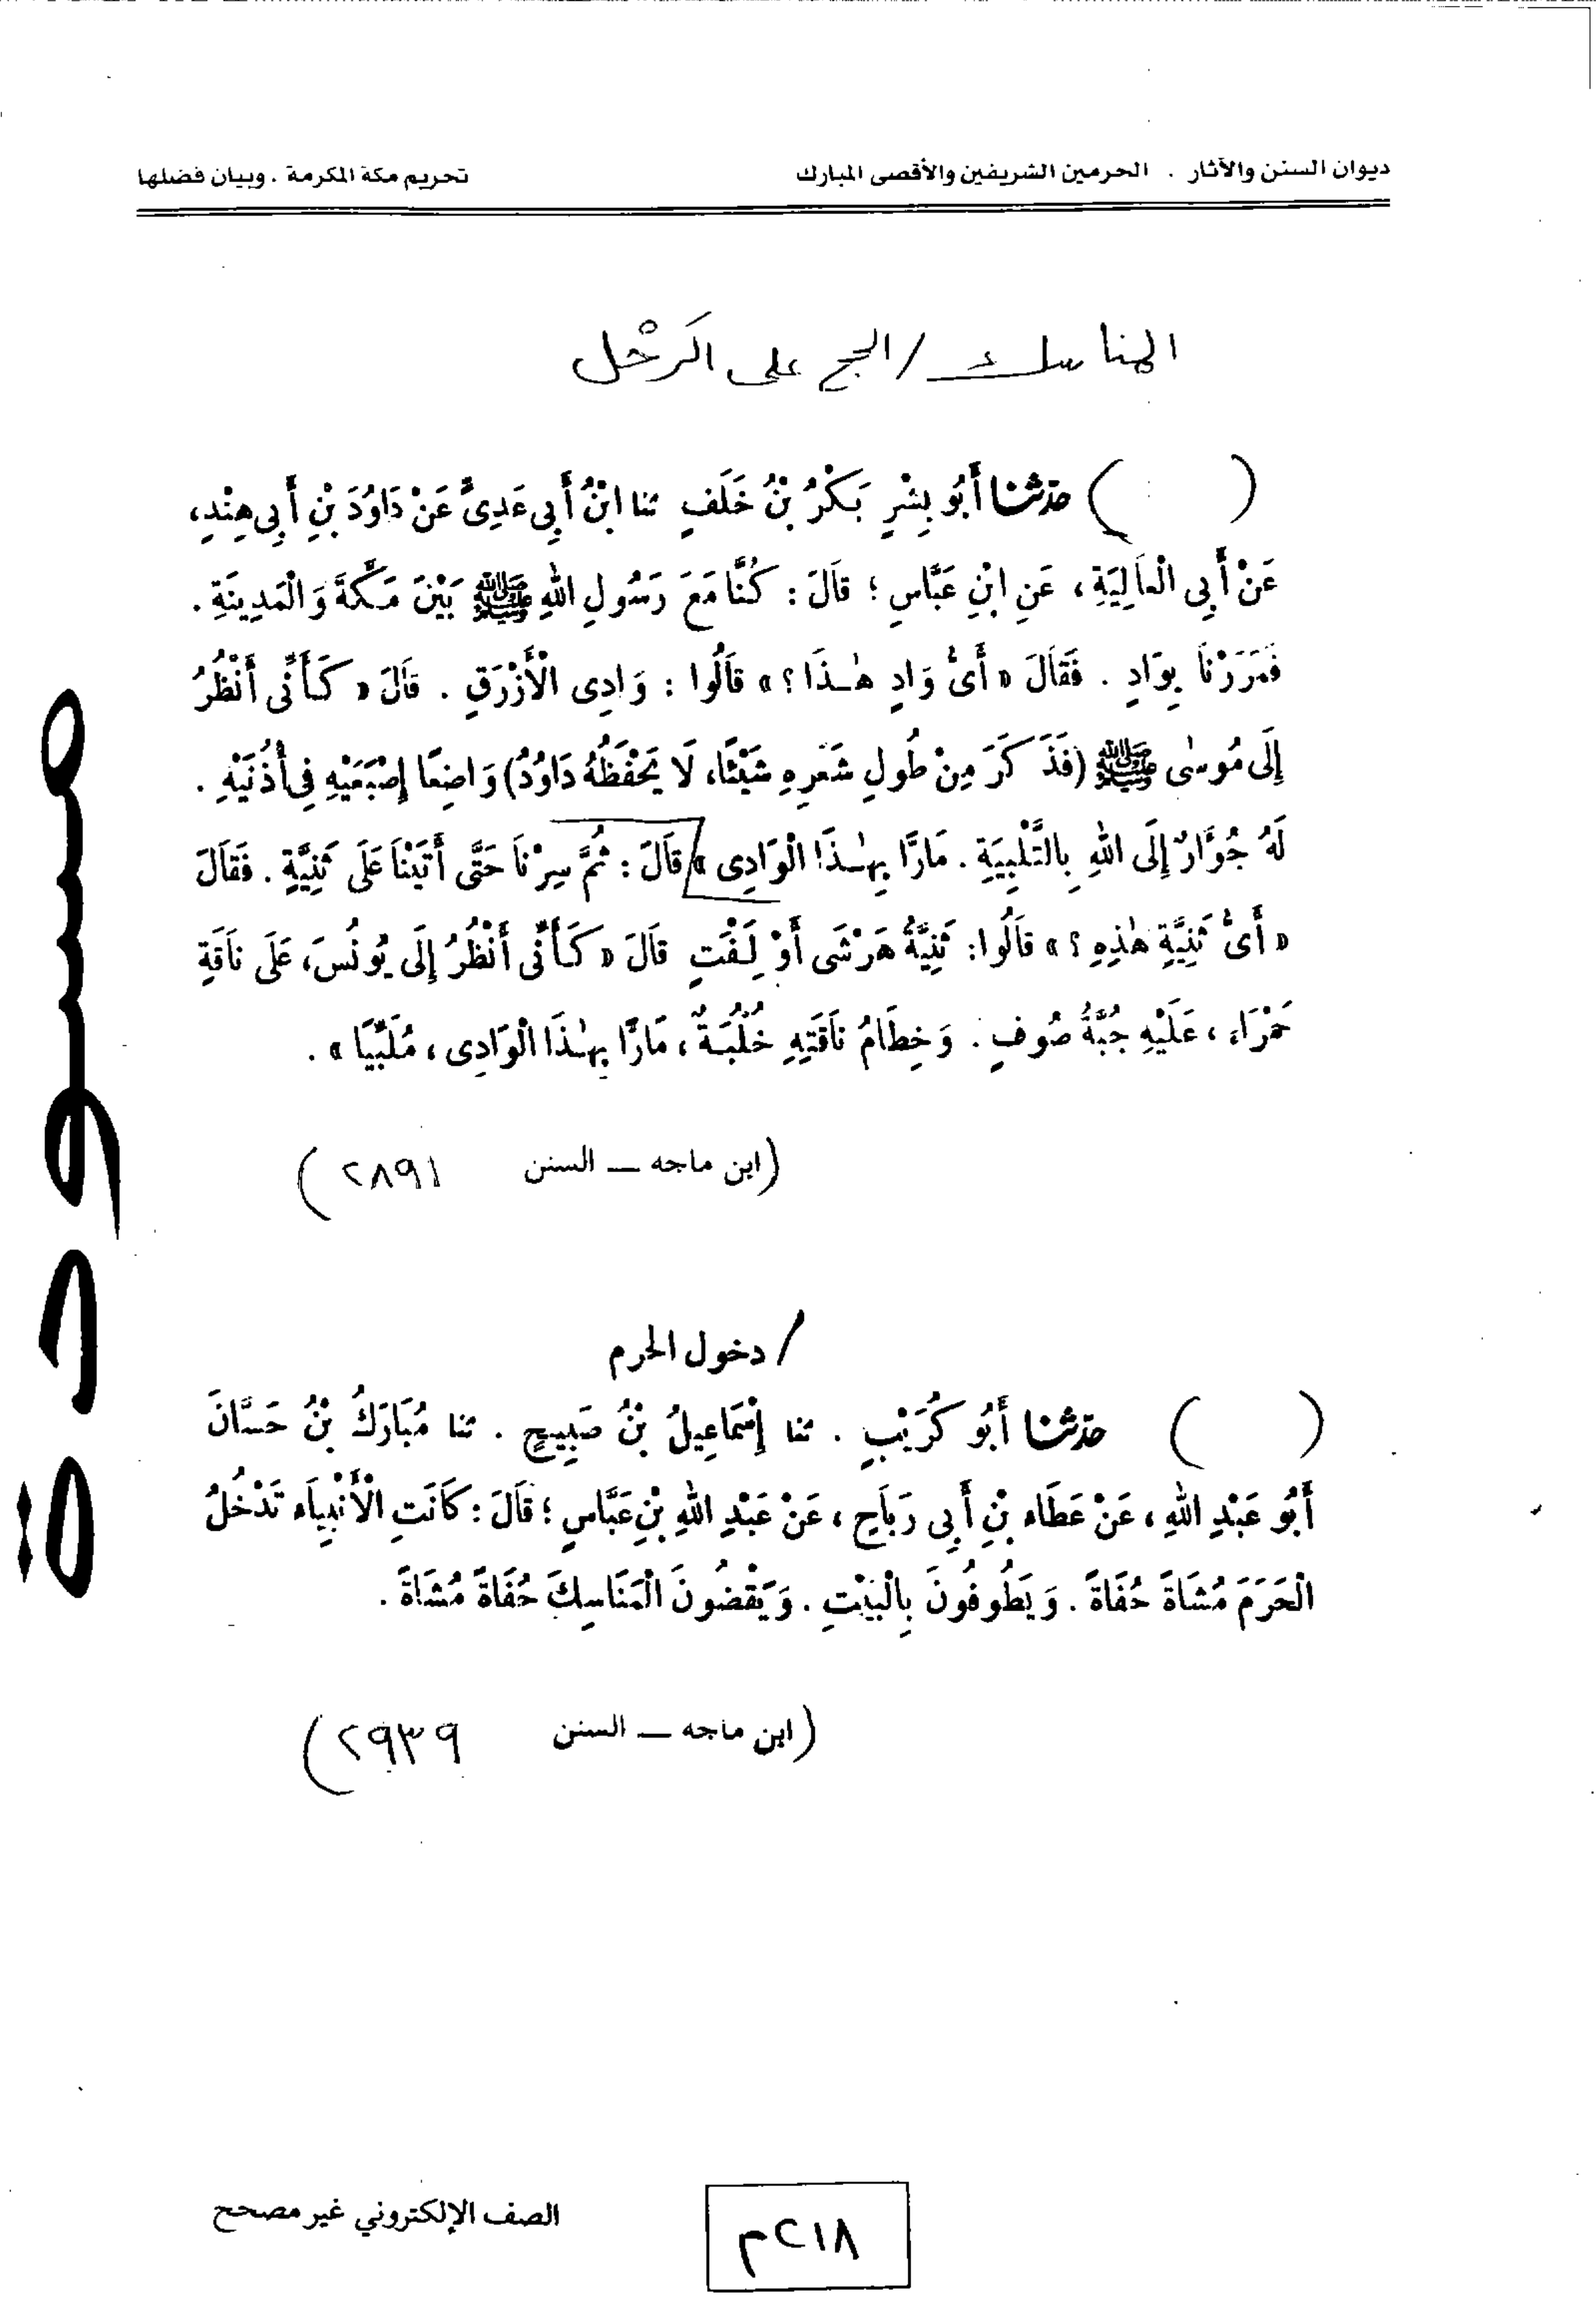 ديوان السنن والآثار . الحرمين الشريفين والأقصى المبارك
تحريم مكة المكرمة . وبيان فضلها
المناسك / الحج على الرَّحْل
( ) حدثنا أَبُو بِشْرٍ بَكْرُ بْنُ خَلَفٍ ثنا ابْنُ أَبِى عَدِىٍّ عَنْ دَاوُدَ بْنِ أَبِى هِنْدٍ،
عَنْ أَبِى الْعَالِيَةِ، عَنِ ابْنِ عَبَّاسٍ؛ قَالَ: كُنَّا مَعَ رَسُولِ اللهِ ﷺ بَيْنَ مَكَّةَ وَالْمَدِينَةِ.
فَمَرَرْنَا بِوَادٍ . فَقَالَ « أَىُّ وَادٍ هٰذَا؟ » قَالُوا : وَادِى الْأَزْرَقِ . قَالَ « كَأَنِّى أَنْظُرُ
إِلَى مُوسٰى ﷺ (فَذَكَرَ مِنْ طُولِ شَعَرِهِ شَيْئًا، لَا يَحْفَظُهُ دَاوُدُ) وَاضِعًا إِصْبَعَيْهِ فِى أُذُنَيْهِ .
لَهُ جُؤَارٌ إِلَى اللهِ بِالتَّلْبِيَةِ . مَارًّا بِهٰذَا الْوَادِى » قَالَ : ثُمَّ سِرْنَا حَتَّى أَتَيْنَا عَلَى ثَنِيَّةٍ . فَقَالَ
« أَىُّ ثَنِيَّةٍ هٰذِهِ ؟ » قَالُوا: ثَنِيَّةُ هَرْشَى أَوْ لَِفْتٍ قَالَ « كَأَنِّى أَنْظُرُ إِلَى يُونُسَ، عَلَى نَاقَةٍ
حَمْرَاءَ ، عَلَيْهِ جُبَّةُ صُوفٍ . وَخِطَامُ نَاقَتِهِ خُلْبَةٌ ، مَارًّا بِهٰذَا الْوَادِى ، مُلَبِّيًا » .
(ابن ماجه ـ السنن ٢٨٩١ )
/ دخول الحرم
( ) حدثنا أَبُو كُرَيْبٍ . ثنا إِسْمَاعِيلُ بْنُ صَبِيحٍ . ثنا مُبَارَكُ بْنُ حَسَّانَ
أَبُو عَبْدِ اللهِ ، عَنْ عَطَاءِ بْنِ أَبِى رَبَاحٍ ، عَنْ عَبْدِ اللهِ بْنِ عَبَّاسٍ ؛ قَالَ : كَانَتِ الْأَنْبِيَاءُ تَدْخُلُ
الْحَرَمَ مُشَاةً حُفَاةً . وَيَطُوفُونَ بِالْبَيْتِ . وَيَقْضُونَ الْمَنَاسِكَ حُفَاةً مُشَاةً .
(ابن ماجه ـ السنن ٢٩٣٩ )
مسودة
الصف الإلكتروني غير مصحح
٢١٨م